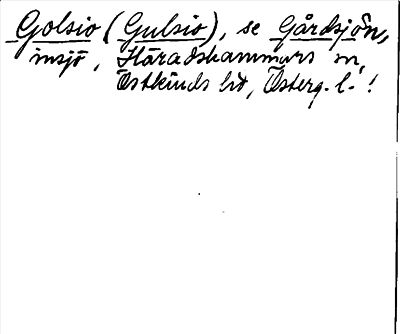 Golsio (Gulsio), se Gårdsjön,
insjö, Häradshammars sn,
Östkinds hd, Österg. l. !